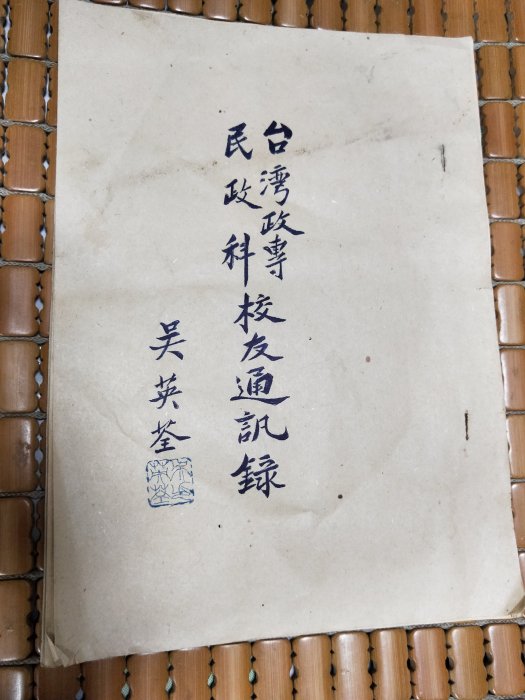 台湾政專
民政科
校友通訊錄
吴英荃